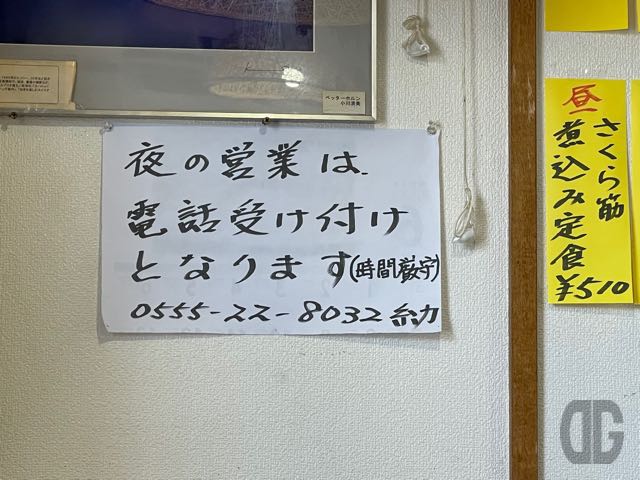 ベッターホルン
小川清美
夜の営業は
電話受け付け
となります(時間厳守)
0555-22-8032
昼
さくら筋
煮込み定食
¥510
DG